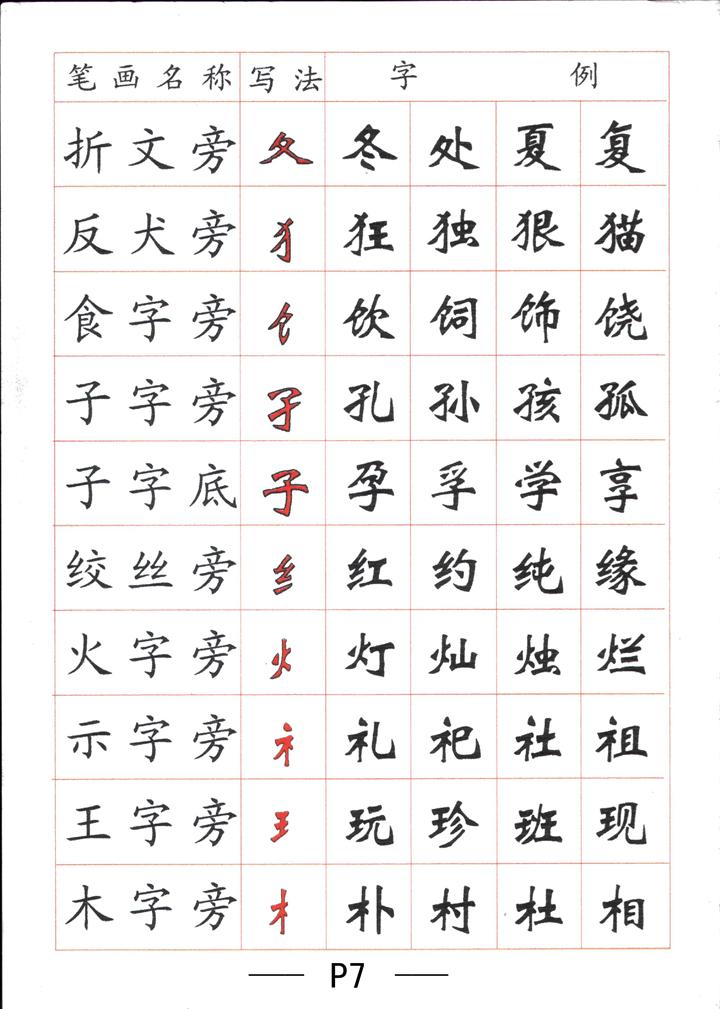 笔画名称 写法 字例
折文旁 夂 冬 处 夏 复
反犬旁 犭 狂 独 狠 猫
食字旁 饣 饮 饲 饰 饶
子字旁 孑 孔 孙 孩 孤
子字底 子 孕 孚 学 享
绞丝旁 纟 红 约 纯 缘
火字旁 火 灯 灿 烛 烂
示字旁 礻 礼 祀 社 祖
王字旁 王 玩 珍 班 现
木字旁 木 朴 村 杜 相
P7